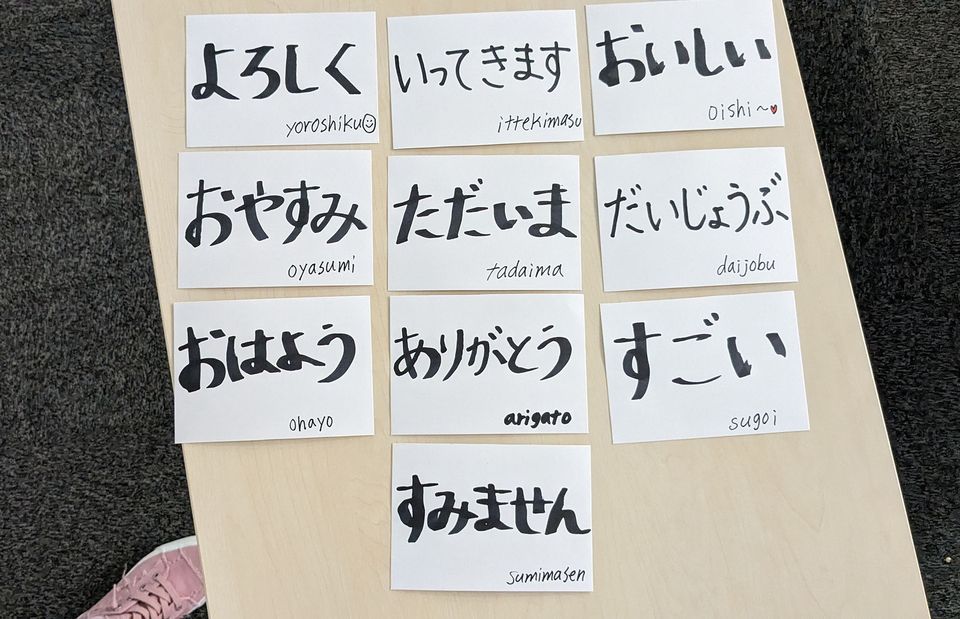 よろしく
yoroshiku☺
いってきます
ittekimasu
おいしい
oishi~♥
おやすみ
oyasumi
ただいま
tadaima
だいじょうぶ
daijobu
おはよう
ohayo
ありがとう
arigato
すごい
sugoi
すみません
sumimasen